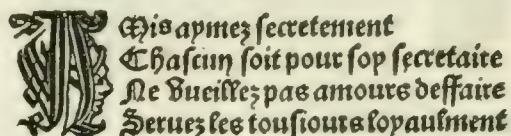 AMis aymez secretement
Chascun soit pour soy secretaire
Ne vueillez pas amours deffaire
Seruez les tousiours loyaulment